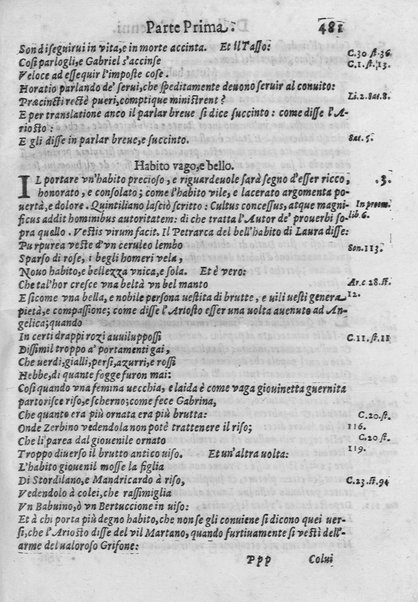 Parte Prima. 481
Son di seguirui in vita, e in morte accinta. Et il Tasso: C.30 st.36.
Cosi parlogli, e Gabriel s'accinse C.1.st.13.
Veloce ad essequir l'imposte cose.
Horatio parlando de' serui, che speditamente deuono seruir al conuito:
Præcincti rectè pueri, comptique ministrent? Li.2 Sat.8.
E per translatione anco il parlar breue si dice succinto: come disse l'A-
riosto:
E gli disse in parlar breue, e succinto. Sat.5.
Habito vago, e bello.
IL portare vn'habito precioso, e riguardeuole sarà segno d'esser ricco, .3.
honorato, e consolato; come l'habito vile, e lacerato argomenta po-
uertà, e dolore. Quintiliano lasciò scritto: Cultus concessus, atque magni- In proem.
ficus addit hominibus autoritatem: di che tratta l'Autor de' prouerbi so- lib.6.
pra quello. Vestis virum facit. Il Petrarca del bell'habito di Laura disse:
Purpurea veste d'vn ceruleo lembo Son.113.
Sparso di rose, i begli homeri vela,
Nouo habito, e bellezza vnica, e sola. Et è vero:
Che tal'hor cresce vna beltà vn bel manto Ar.c 28.st.
E sicome vna bella, e nobile persona uestita di brutte, e uili uesti genera 12.
pietà, e compassione; come disse l'Ariosto esser una uolta auenuto ad An-
gelica; quando
In certi drappi rozi auuiluppossi C.11.st.11
Dissimil troppo a' portamenti gai,
Che uerdi, gialli, persi, azurri, e rossi
Hebbe, di quante fogge furon mai:
Cosi quando vna femina uecchia, e laida è come vaga giouinetta guernita
partorisce riso, e scherno; come fece Gabrina,
Che quanto era più ornata era più brutta: C.20.st.
Onde Zerbino vedendola non potè trattenere il riso; 116.
Che li parea dal giouenile ornato C.20.st.
Troppo diuerso il brutto antico uiso. Et un'altra uolta: 119.
L'habito giouenil mosse la figlia
Di Stordilano, e Mandricardo à riso, C.23.st.94
Vedendolo à colei, che rassimiglia
Vn Babuino, ò vn Bertuccione in uiso:
Et à chi porta più degno habito, che non se gli conuiene si dicono quei uer-
si, che l'Ariosto disse del vil Martano, quando furtiuamente si vestì dell'-
arme del valoroso Grifone:
Ppp Colui